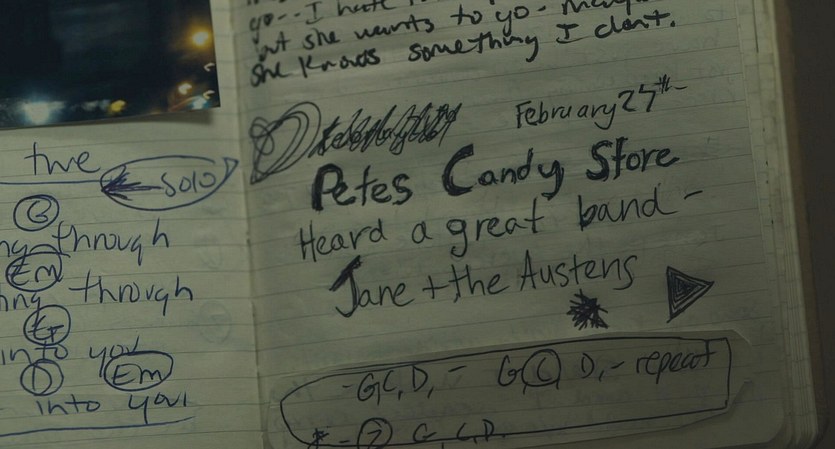 the
solo
G
through
Em
through
G
into you
D Em
into your
go-- I hate
but she wants to go-
She knows something I don't.
February 27th-
Petes Candy Store
Heard a great band -
Jane + the Austens
- G, C, D, - G, C D, - repeat
* - 2 G, C, D